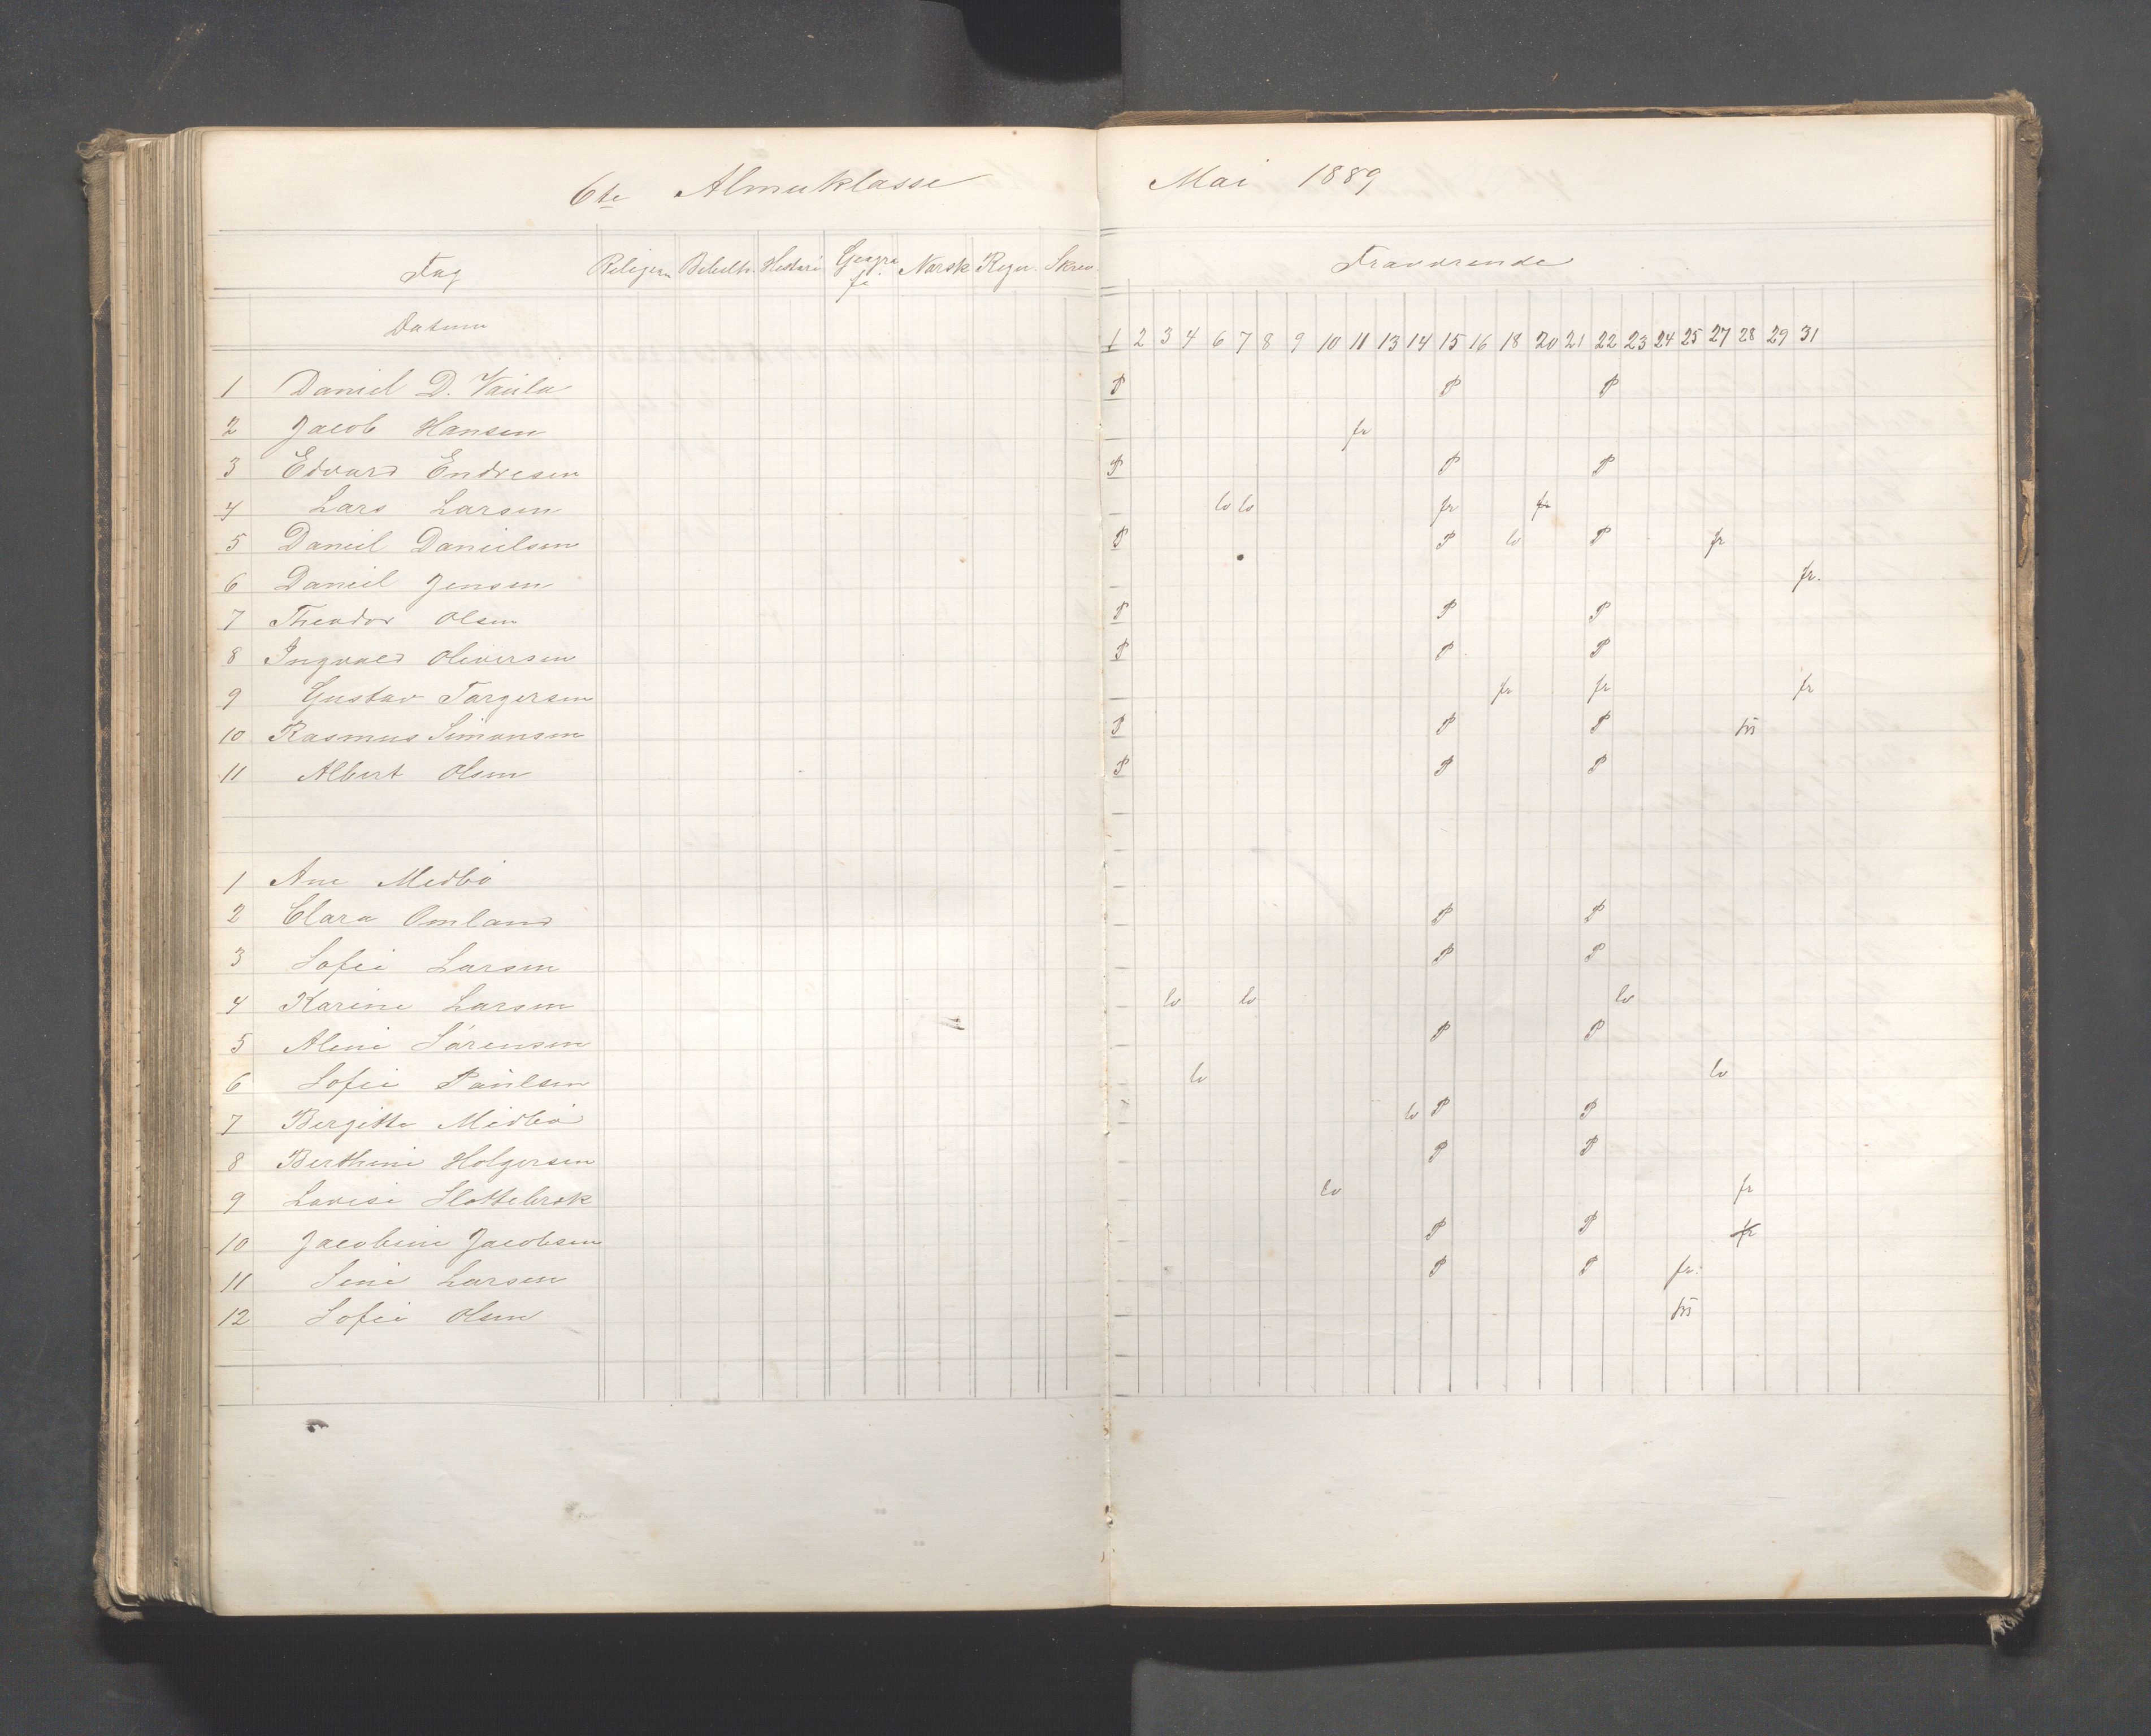 6te Almueklasse Mai 1889
Fag Religion Bibelh. Historie Geografi Norsk Regn. Skrev Fraværende
Datum 1 2 3 4 6 7 8 9 10 11 13 14 15 16 18 20 21 22 23 24 25 27 28 29 31
1 Daniel D. Vaula P P P
2 Jacob Hansen fr
3 Edvard Endresen P P P
4 Lars Larsen lo lo fr fr
5 Daniel Danielsen P P lo P fr
6 Daniel Jensen fr.
7 Theodor Olsen P P P
8 Ingvald Oliversen P P P
9 Gustav Torgersen fr fr fr
10 Rasmus Simonsen P P P
11 Albert Olsen P P P
1 Ane Medbö
2 Clara Omland P P
3 Sofie Larsen P P
4 Karine Larsen lo lo lo
5 Aline Sörensen P P
6 Sofie Paulsen lo lo
7 Bergitte Midbö lo P P
8 Berthine Holgersen P P
9 Lovise Slottebrek lo fr
10 Jacobine Jacobsen P P fr
11 Sine Larsen P P fr.
12 Sofie Olsen